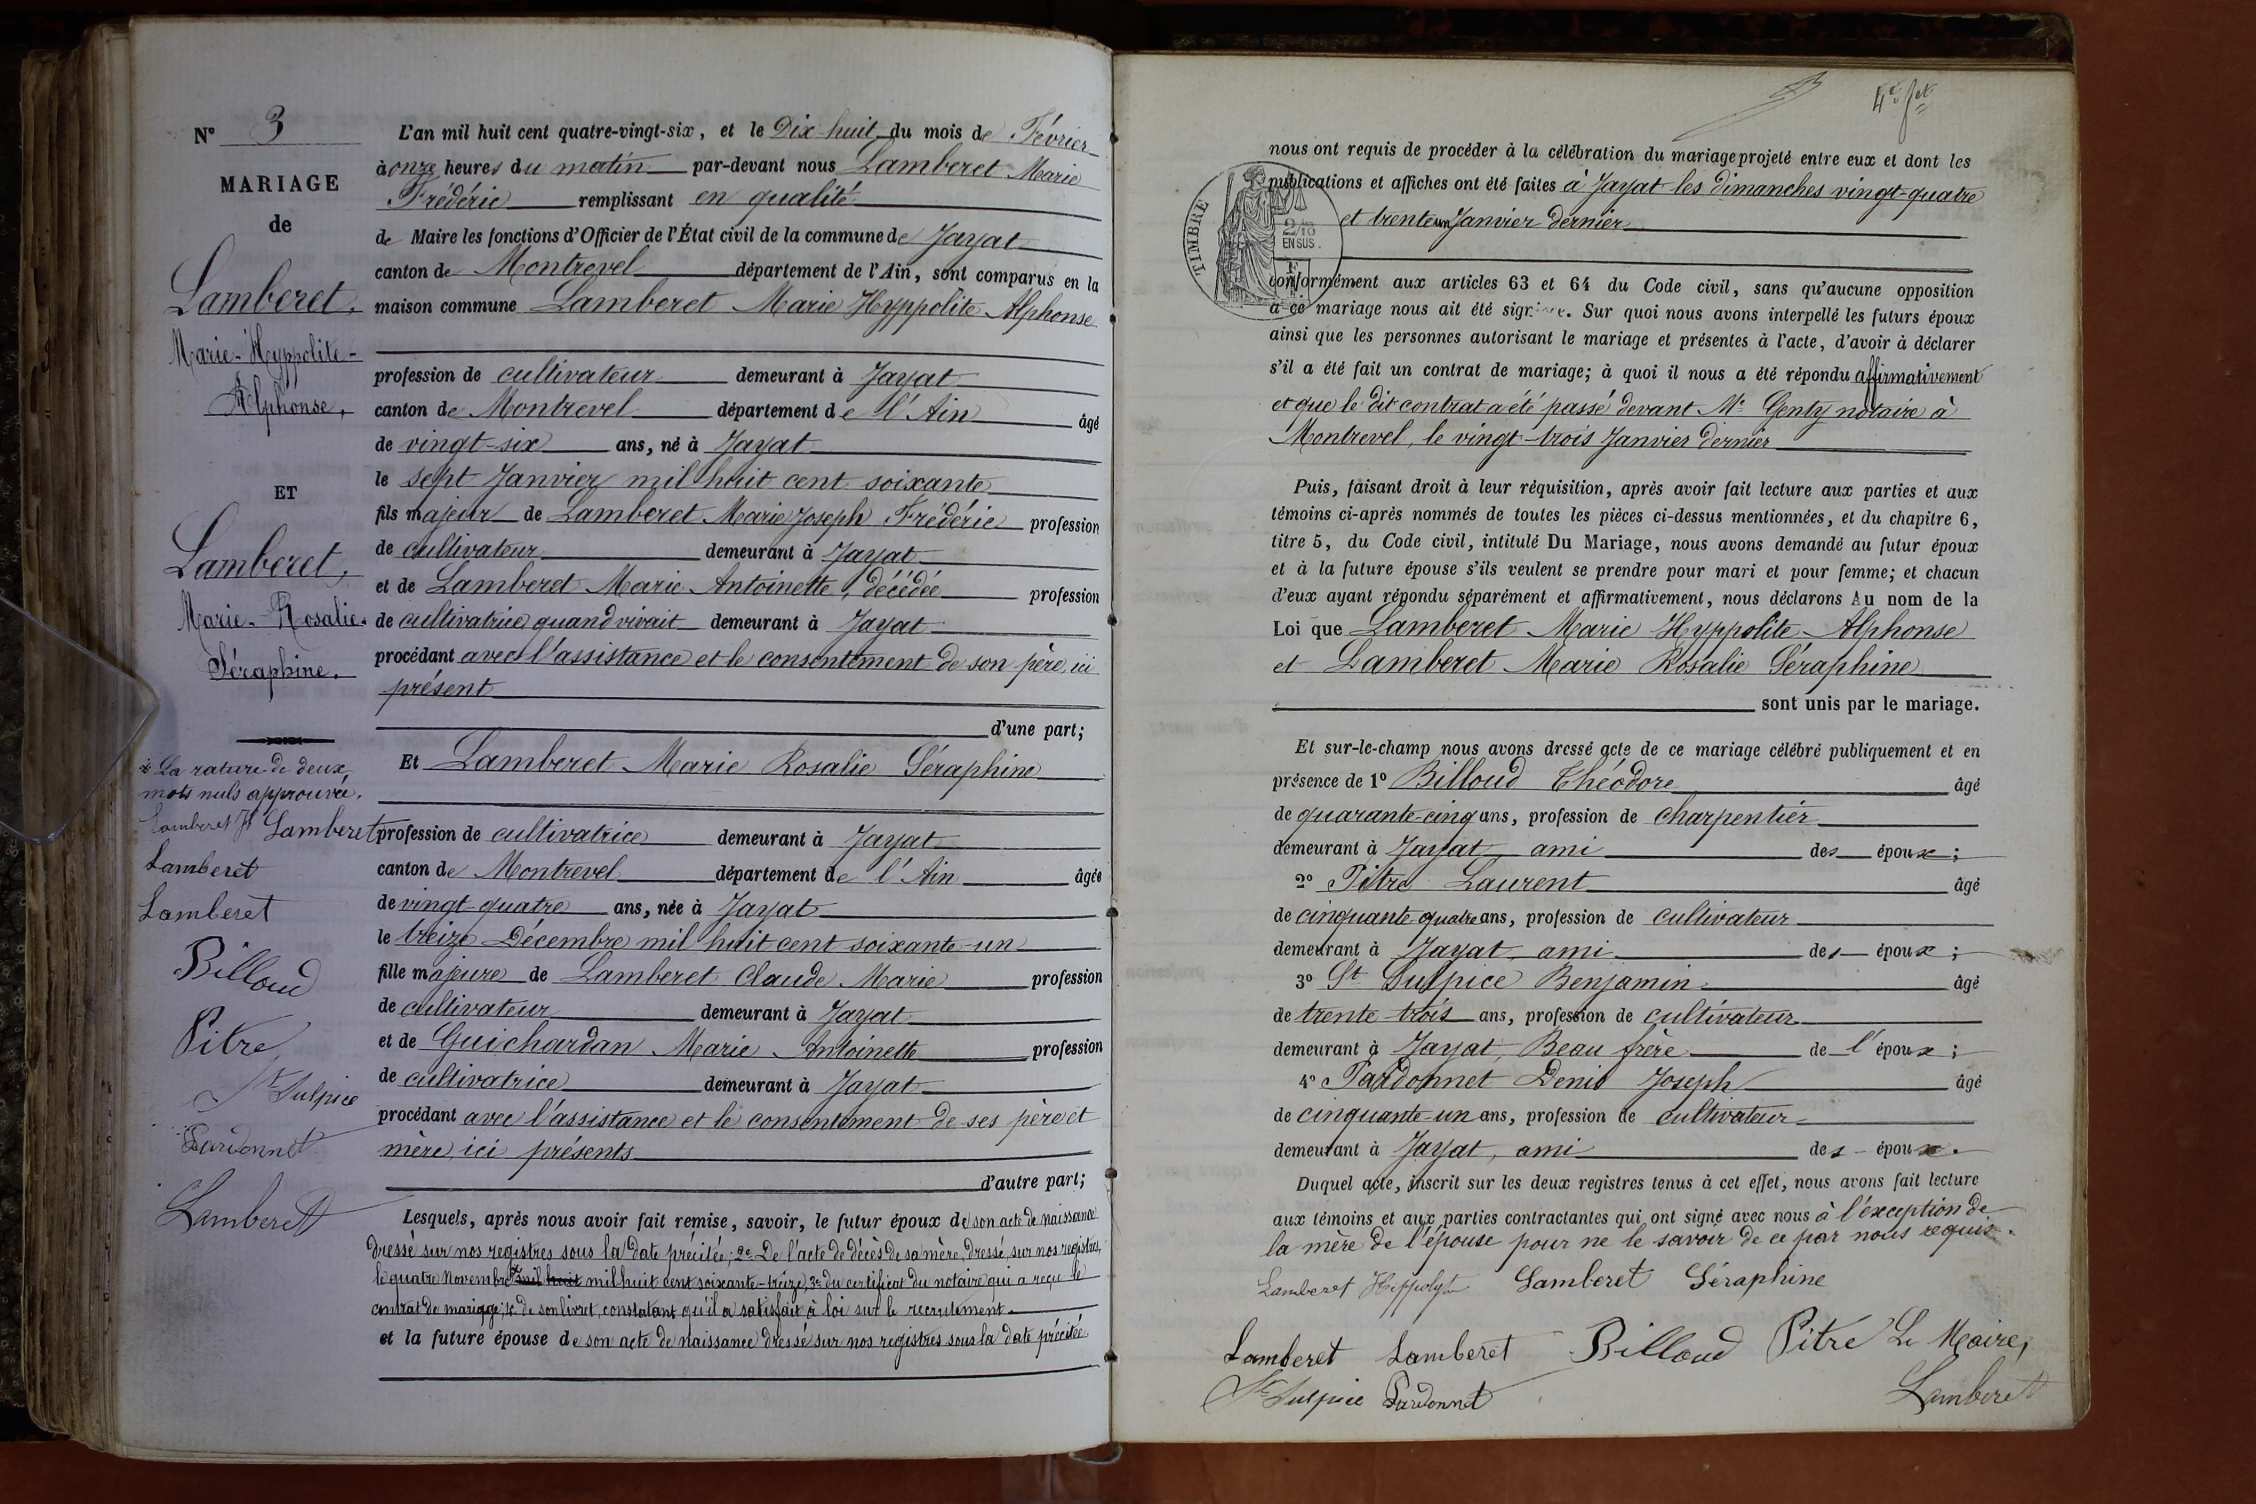 N° 3
MARIAGE
de
Lamberet,
Marie-Hyppolite-
Alphonse,
ET
Lamberet,
Marie-Rosalie-
Séraphine,
La rature de deux
mots nuls approuvée.
Lamberet H Lamberet
Lamberet
Lamberet
Billoud
Pitre
St Sulpice
Pardonnet
Lamberet
L'an mil huit cent quatre-vingt-six, et le Dix-huit du mois de Février
à onze heures du matin par-devant nous Lamberet Marie
Frédéric remplissant en qualité
de Maire les fonctions d'Officier de l'État civil de la commune de Jayat
canton de Montrevel département de l'Ain, sont comparus en la
maison commune Lamberet Marie Hyppolite Alphonse
profession de cultivateur demeurant à Jayat
canton de Montrevel département de l'Ain âgé
de vingt-six ans, né à Jayat
le sept Janvier mil huit cent soixante
fils majeur de Lamberet Marie Joseph Frédéric profession
de cultivateur demeurant à Jayat
et de Lamberet Marie Antoinette, décédée profession
de cultivatrice quand vivait demeurant à Jayat
procédant avec l'assistance et le consentement de son père, ici
présent
d'une part;
Et Lamberet Marie Rosalie Séraphine
profession de cultivatrice demeurant à Jayat
canton de Montrevel département de l'Ain âgée
de vingt-quatre ans, née à Jayat
le treize Décembre mil huit cent soixante-un
fille majeure de Lamberet Claude Marie profession
de cultivateur demeurant à Jayat
et de Guichardan Marie Antoinette profession
de cultivatrice demeurant à Jayat
procédant avec l'assistance et le consentement de ses père et
mère, ici présents
d'autre part;
Lesquels, après nous avoir fait remise, savoir, le futur époux de son acte de naissance
dressé sur nos registres sous la date précitée; 2° De l'acte de décès de sa mère, dressé sur nos registres,
le quatre Novembre mil huit mil huit cent soixante-treize; 3° du certificat du notaire qui a reçu le
contrat de mariage; 4° de son livret, constatant qu'il a satisfait à loi sur le recrutement.
et la future épouse de son acte de naissance dressé sur nos registres sous la date précitée
nous ont requis de procéder à la célébration du mariage projeté entre eux et dont les
publications et affiches ont été faites à Jayat les dimanches vingt-quatre
et trente un Janvier dernier
TIMBRE
2/10
EN SUS.
conformément aux articles 63 et 64 du Code civil, sans qu'aucune opposition
à ce mariage nous ait été signifiée. Sur quoi nous avons interpellé les futurs époux
ainsi que les personnes autorisant le mariage et présentes à l'acte, d'avoir à déclarer
s'il a été fait un contrat de mariage; à quoi il nous a été répondu affirmativement
et que le dit contrat a été passé devant Me Genty notaire à
Montrevel, le vingt-trois Janvier dernier
Puis, faisant droit à leur réquisition, après avoir fait lecture aux parties et aux
témoins ci-après nommés de toutes les pièces ci-dessus mentionnées, et du chapitre 6,
titre 5, du Code civil, intitulé Du Mariage, nous avons demandé au futur époux
et à la future épouse s'ils veulent se prendre pour mari et pour femme; et chacun
d'eux ayant répondu séparément et affirmativement, nous déclarons Au nom de la
Loi que Lamberet Marie Hyppolite Alphonse
et Lamberet Marie Rosalie Séraphine
sont unis par le mariage.
Et sur-le-champ nous avons dressé acte de ce mariage célébré publiquement et en
présence de 1° Billoud Théodore âgé
de quarante-cinq ans, profession de charpentier
demeurant à Jayat, ami des époux;
2° Pitre Laurent âgé
de cinquante-quatre ans, profession de cultivateur
demeurant à Jayat, ami des époux;
3° St Sulpice Benjamin âgé
de trente-trois ans, profession de cultivateur
demeurant à Jayat, Beau frère de l'époux;
4° Pardonnet Denis Joseph âgé
de cinquante-un ans, profession de cultivateur
demeurant à Jayat, ami des époux.
Duquel acte, inscrit sur les deux registres tenus à cet effet, nous avons fait lecture
aux témoins et aux parties contractantes qui ont signé avec nous à l'éxception de
la mère de l'épouse pour ne le savoir de ce par nous requis.
Lamberet Hippolyte Lamberet Séraphine
Lamberet Lamberet Billoud Pitre Le Maire,
St Sulpice Pardonnet Lamberet